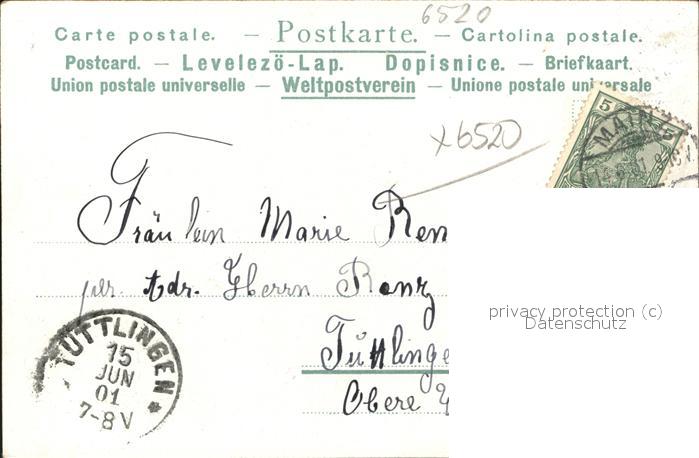 6520
Carte postale. — Postkarte. — Cartolina postale.
Postcard. — Levelezö-Lap. Dopisnice. — Briefkaart.
Union postale universelle — Weltpostverein — Unione postale universale
5 5
MAINZ
x6520
Fräulein Marie Ren
per. Adr. Herrn Renz
Tuttlinge
Obere
privacy protection (c)
Datenschutz
TUTTLINGEN
15
JUN
01
7-8 V